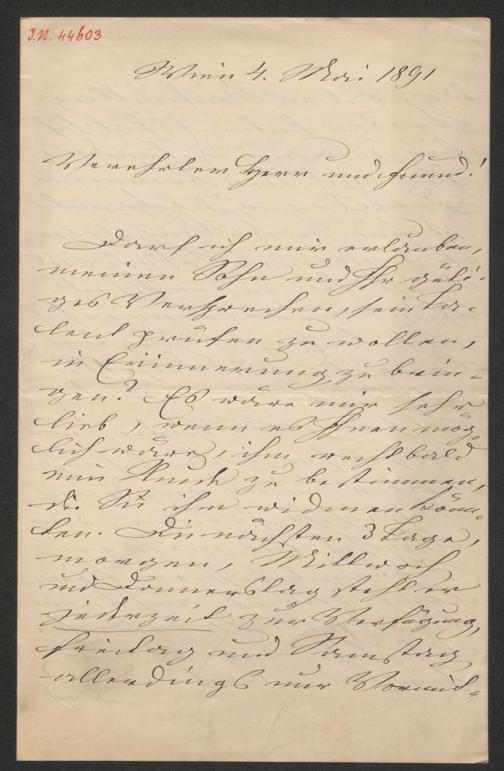 J.N. 44603
Wien 4. Mai 1891
Verehrter Herr und Freund!
Darf ich mir erlauben,
meinen Sohn und Ihr güti-
ges Versprechen, sein Ta-
lent prüfen zu wollen,
in Erinnerung zu brin-
gen? Es wäre mir sehr
lieb, wenn es Ihnen mög-
lich wäre, ihm recht bald
eine Stunde zu bestimmen,
die Sie ihm widmen könn-
ten. Die nächsten 3 Tage,
morgen, Mittwoch
und Donnerstag steht er
jederzeit zur Verfügung,
Freitag und Samstag
allerdings nur Vormit-